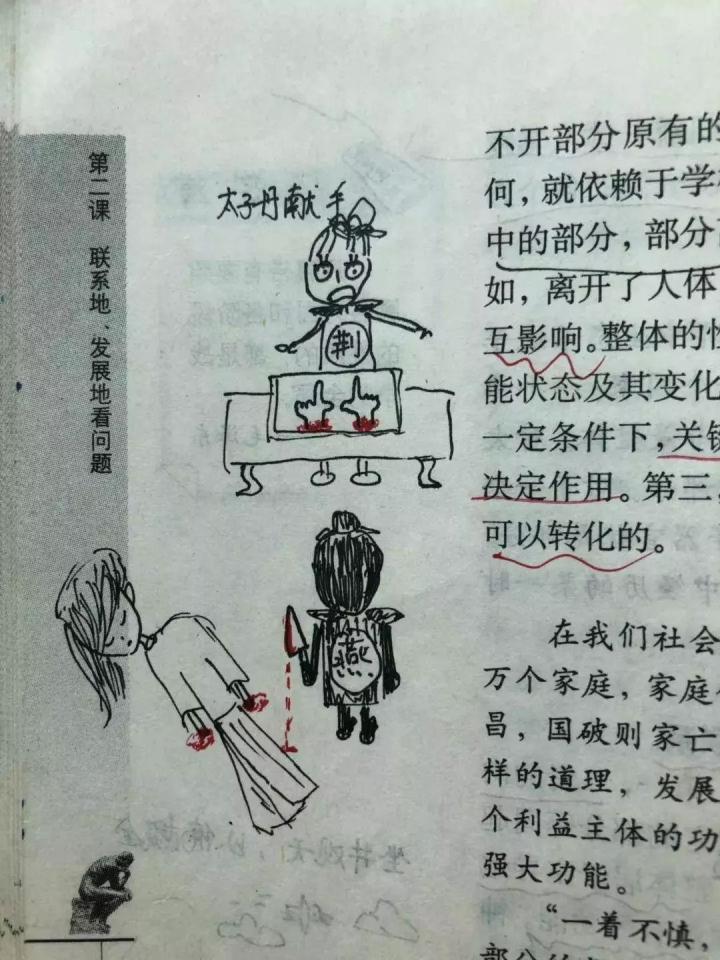 第二课 联系地、发展地看问题
太子丹献手
荆
燕
不开部分原有的
何，就依赖于学
中的部分，部分
如，离开了人体
互影响。整体的性
能状态及其变化
一定条件下，关键
决定作用。第三，
可以转化的。
在我们社会
万个家庭，家庭
昌，国破则家亡
样的道理，发展
个利益主体的功
强大功能。
“一着不慎，